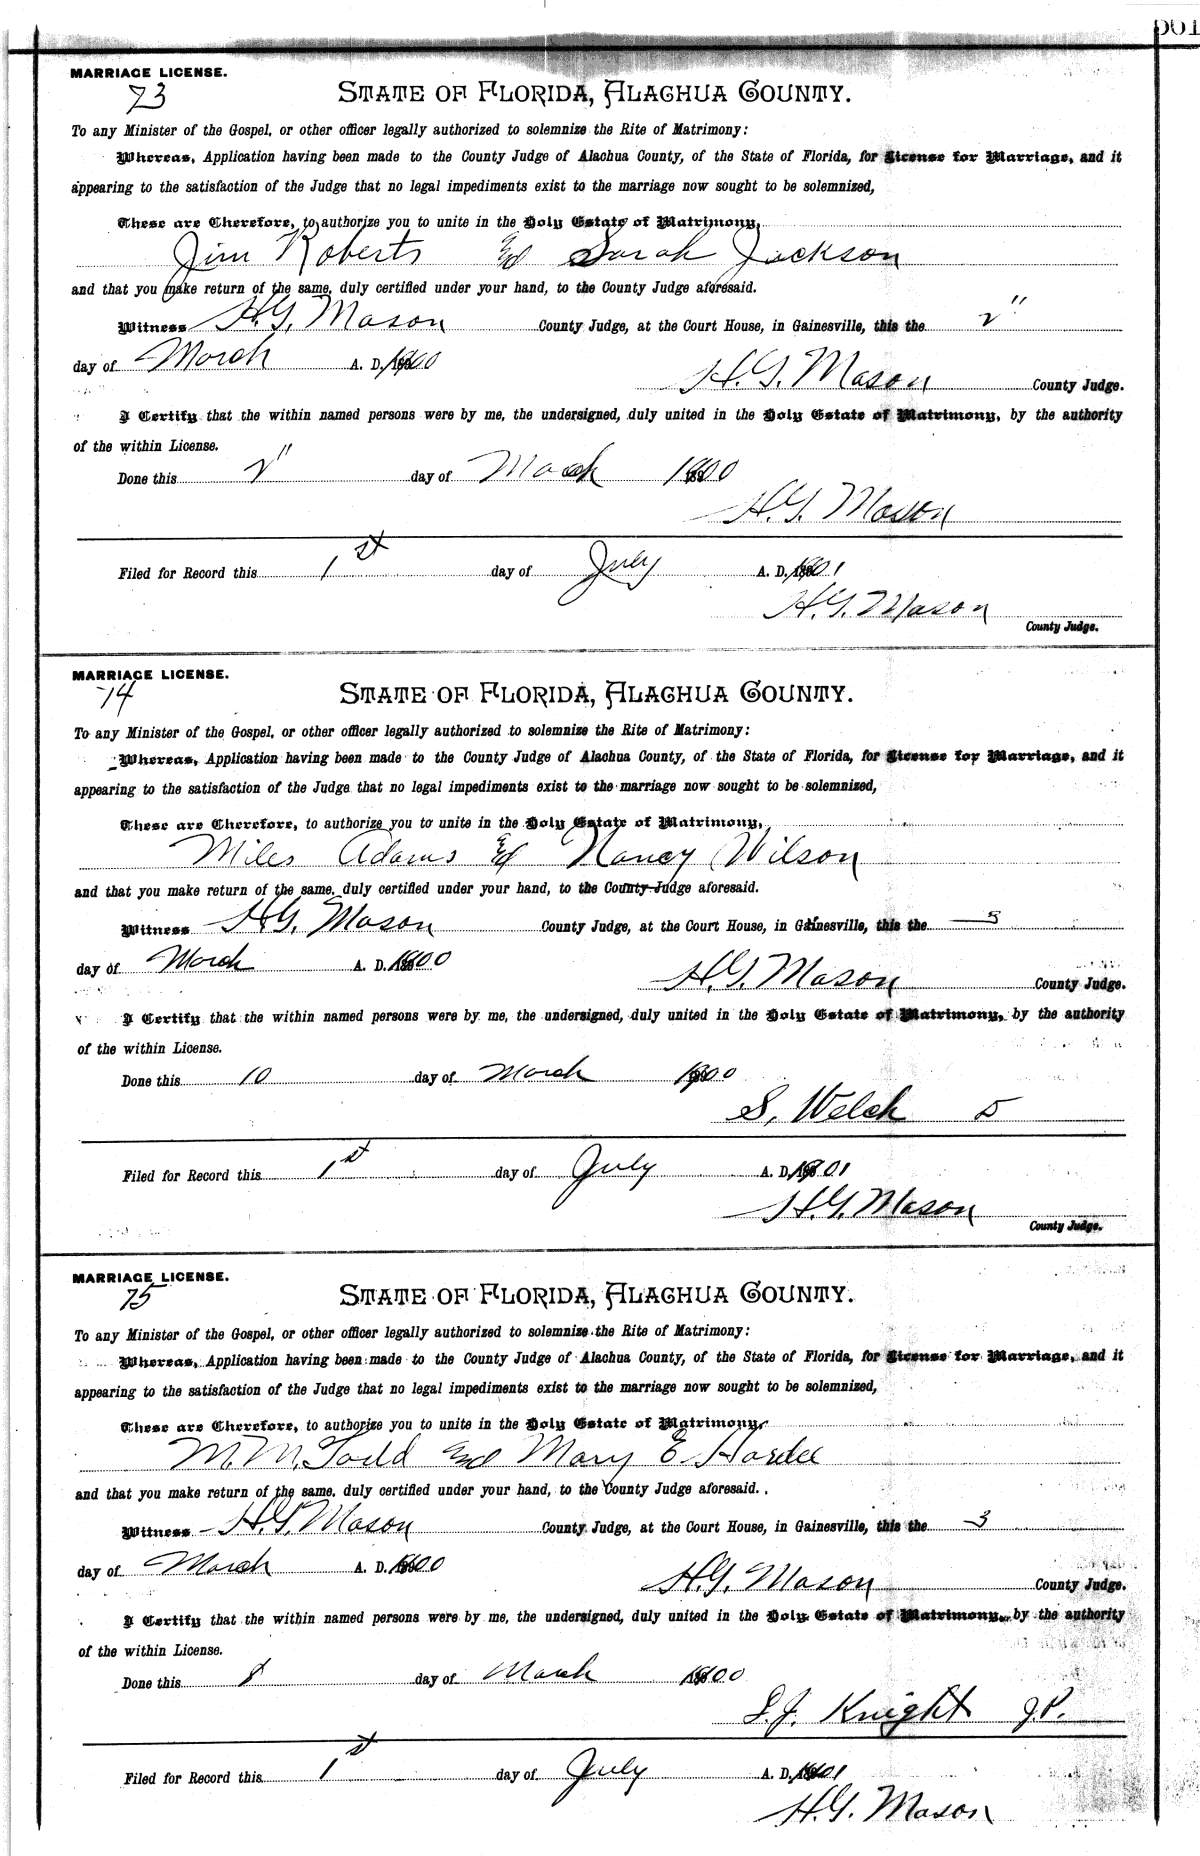 561
MARRIAGE LICENSE.
73
STATE OF FLORIDA, ALACHUA COUNTY.
To any Minister of the Gospel, or other officer legally authorized to solemnize the Rite of Matrimony:
Whereas, Application having been made to the County Judge of Alachua County, of the State of Florida, for License for Marriage, and it
appearing to the satisfaction of the Judge that no legal impediments exist to the marriage now sought to be solemnized,
These are Therefore, to authorize you to unite in the Holy Estate of Matrimony,
Jim Roberts and Sarah Jackson
and that you make return of the same, duly certified under your hand, to the County Judge aforesaid.
Witness H.G. Mason County Judge, at the Court House, in Gainesville, this the 2"
day of March A. D. 1900
H.G. Mason County Judge.
I Certify that the within named persons were by me, the undersigned, duly united in the Holy Estate of Matrimony, by the authority
of the within License.
Done this 2" day of March 1900
H.G. Mason
Filed for Record this 1st day of July A. D. 1901
H.G. Mason
County Judge.
MARRIAGE LICENSE.
74
STATE OF FLORIDA, ALACHUA COUNTY.
To any Minister of the Gospel, or other officer legally authorized to solemnize the Rite of Matrimony:
Whereas, Application having been made to the County Judge of Alachua County, of the State of Florida, for License for Marriage, and it
appearing to the satisfaction of the Judge that no legal impediments exist to the marriage now sought to be solemnized,
These are Therefore, to authorize you to unite in the Holy Estate of Matrimony,
Miles Adams and Nancy Wilson
and that you make return of the same, duly certified under your hand, to the County Judge aforesaid.
Witness H.G. Mason County Judge, at the Court House, in Gainesville, this the 3
day of March A. D. 1900
H.G. Mason County Judge.
I Certify that the within named persons were by me, the undersigned, duly united in the Holy Estate of Matrimony, by the authority
of the within License.
Done this 10 day of March 1900
S. Welch
Filed for Record this 1st day of July A. D. 1901
H.G. Mason
County Judge.
MARRIAGE LICENSE.
75
STATE OF FLORIDA, ALACHUA COUNTY.
To any Minister of the Gospel, or other officer legally authorized to solemnize the Rite of Matrimony:
Whereas, Application having been made to the County Judge of Alachua County, of the State of Florida, for License for Marriage, and it
appearing to the satisfaction of the Judge that no legal impediments exist to the marriage now sought to be solemnized,
These are Therefore, to authorize you to unite in the Holy Estate of Matrimony,
M. M. Todd and Mary E Hardee
and that you make return of the same, duly certified under your hand, to the County Judge aforesaid.
Witness H.G. Mason County Judge, at the Court House, in Gainesville, this the 3
day of March A. D. 1900
H.G. Mason County Judge.
I Certify that the within named persons were by me, the undersigned, duly united in the Holy Estate of Matrimony, by the authority
of the within License.
Done this 8 day of March 1900
S.J. Knight J.P.
Filed for Record this 1st day of July A. D. 1901
H.G. Mason